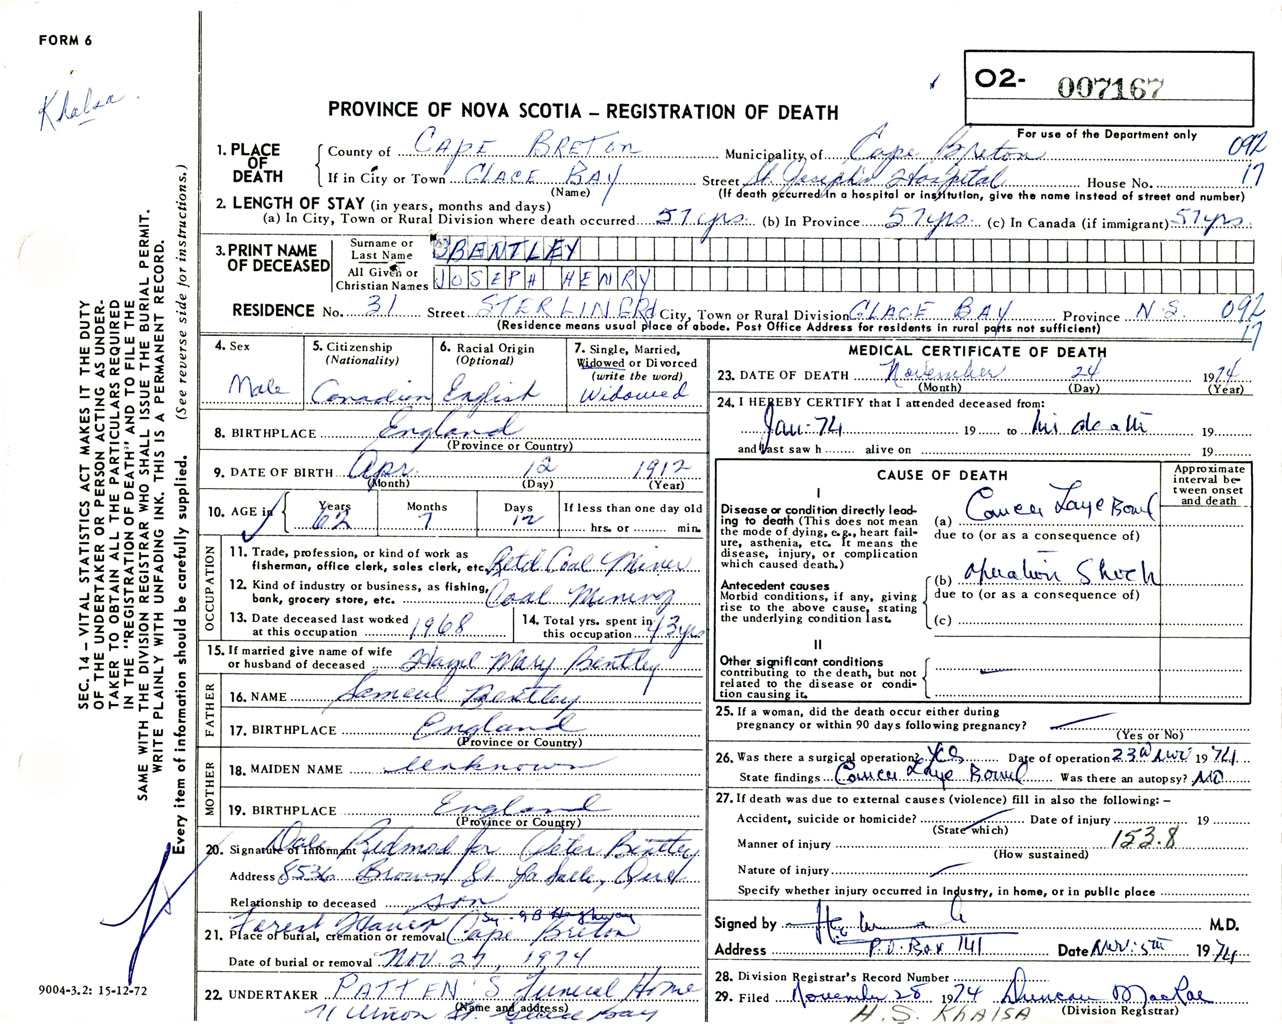 FORM 6
Khalsa
O2- 007167
PROVINCE OF NOVA SCOTIA – REGISTRATION OF DEATH
For use of the Department only
1. PLACE OF DEATH
County of CAPE BRETON Municipality of Cape Breton 092
If in City or Town GLACE BAY Street St. Joseph's Hospital House No. 17
(Name) (If death occurred in a hospital or institution, give the name instead of street and number)
2. LENGTH OF STAY (in years, months and days)
(a) In City, Town or Rural Division where death occurred 57 yrs. (b) In Province 57 yrs. (c) In Canada (if immigrant) 57 yrs.
3. PRINT NAME OF DECEASED
Surname or Last Name BENTLEY
All Given or Christian Names JOSEPH HENRY
RESIDENCE No. 31 Street STERLING Rd City, Town or Rural Division GLACE BAY Province N.S. 092
17
(Residence means usual place of abode. Post Office Address for residents in rural parts not sufficient)
4. Sex
Male
5. Citizenship
(Nationality)
Canadian
6. Racial Origin
(Optional)
English
7. Single, Married,
Widowed or Divorced
(write the word)
Widowed
8. BIRTHPLACE England
(Province or Country)
9. DATE OF BIRTH Apr. 12 1912
(Month) (Day) (Year)
10. AGE in Years Months Days If less than one day old
62 7 12 hrs. or min.
OCCUPATION
11. Trade, profession, or kind of work as
fisherman, office clerk, sales clerk, etc. Ret'd Coal Miner
12. Kind of industry or business, as fishing,
bank, grocery store, etc. Coal Mining
13. Date deceased last worked
at this occupation 1968
14. Total yrs. spent in
this occupation 43 yrs
15. If married give name of wife
or husband of deceased Hazel Mary Bentley
FATHER
16. NAME Samuel Bentley
17. BIRTHPLACE England
(Province or Country)
MOTHER
18. MAIDEN NAME Unknown
19. BIRTHPLACE England
(Province or Country)
20. Signature of informant Dale Redmond for Peter Bentley
Address 8536 Brown St. LaSalle, Que
Relationship to deceased son
Forest Haven Sy.-GB Highway
21. Place of burial, cremation or removal Cape Breton
Date of burial or removal NOV. 27, 1974
22. UNDERTAKER PATTEN'S Funeral Home
(Name and address)
71 Union St. Glace Bay
MEDICAL CERTIFICATE OF DEATH
23. DATE OF DEATH November 24 1974
(Month) (Day) (Year)
24. I HEREBY CERTIFY that I attended deceased from:
Jan-74 19 to his death 19
and last saw h alive on 19
CAUSE OF DEATH
Approximate interval between onset and death
I
Disease or condition directly leading to death (This does not mean the mode of dying, e.g., heart failure, asthenia, etc. It means the disease, injury, or complication which caused death.)
(a) Cancer Large Bowel
due to (or as a consequence of)
Antecedent causes
Morbid conditions, if any, giving rise to the above cause, stating the underlying condition last.
(b) operation Shock
due to (or as a consequence of)
(c)
II
Other significant conditions contributing to the death, but not related to the disease or condition causing it.
25. If a woman, did the death occur either during
pregnancy or within 90 days following pregnancy?
(Yes or No)
26. Was there a surgical operation? Yes Date of operation 23rd Nov 1974
State findings Cancer Large Bowel Was there an autopsy? NO
27. If death was due to external causes (violence) fill in also the following: –
Accident, suicide or homicide? Date of injury 19
(State which)
Manner of injury 153.8
(How sustained)
Nature of injury
Specify whether injury occurred in Industry, in home, or in public place
Signed by M.D.
Address P.O. Box 141 Date Nov. 5th 1974
28. Division Registrar's Record Number
29. Filed November 28 1974 Duncan MacRae
(Division Registrar)
H.S. KHALSA
SEC. 14 – VITAL STATISTICS ACT MAKES IT THE DUTY
OF THE UNDERTAKER OR PERSON ACTING AS UNDER-
TAKER TO OBTAIN ALL THE PARTICULARS REQUIRED
IN THE "REGISTRATION OF DEATH" AND TO FILE THE
SAME WITH THE DIVISION REGISTRAR WHO SHALL ISSUE THE BURIAL PERMIT.
WRITE PLAINLY WITH UNFADING INK. THIS IS A PERMANENT RECORD.
Every item of information should be carefully supplied. (See reverse side for instructions.)
9004-3.2: 15-12-72